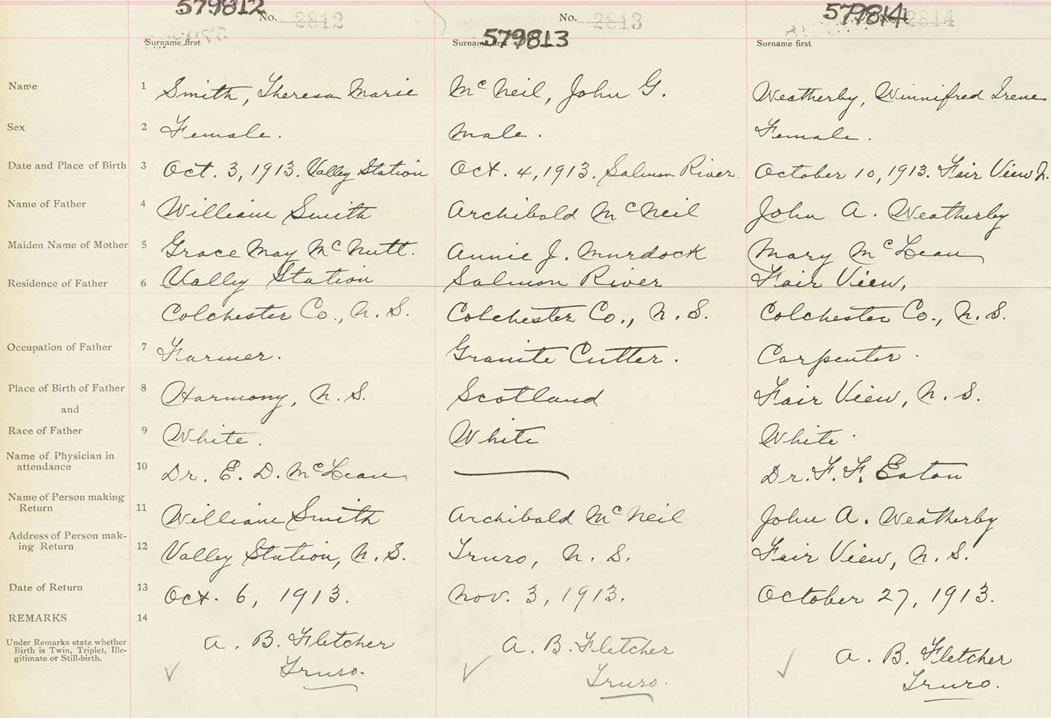 579812 No. 2812 No. 2813 579814 2814
Surname first Surname first 579813 Surname first
Name 1 Smith, Theresa Marie McNeil, John G. Weatherby, Winnifred Irene
Sex 2 Female. Male. Female.
Date and Place of Birth 3 Oct. 3, 1913. Valley Station Oct. 4, 1913. Salmon River. October 10, 1913. Fair View
Name of Father 4 William Smith Archibald McNeil John A. Weatherby
Maiden Name of Mother 5 Grace May McNutt. Annie J. Murdock Mary McLean
Residence of Father 6 Valley Station Salmon River Fair View,
Colchester Co., N.S. Colchester Co., N.S. Colchester Co., N.S.
Occupation of Father 7 Farmer. Granite Cutter. Carpenter.
Place of Birth of Father 8 Harmony, N.S. Scotland Fair View, N.S.
and
Race of Father 9 White. White White.
Name of Physician in
attendance 10 Dr. E. D. McLean Dr. F. F. Eaton
Name of Person making
Return 11 William Smith Archibald McNeil John A. Weatherby
Address of Person mak-
ing Return 12 Valley Station, N.S. Truro, N.S. Fair View, N.S.
Date of Return 13 Oct. 6, 1913. Nov. 3, 1913. October 27, 1913.
REMARKS 14
Under Remarks state whether
Birth is Twin, Triplet, Ille-
gitimate or Still-birth.
A. B. Fletcher A. B. Fletcher A. B. Fletcher
Truro. Truro. Truro.